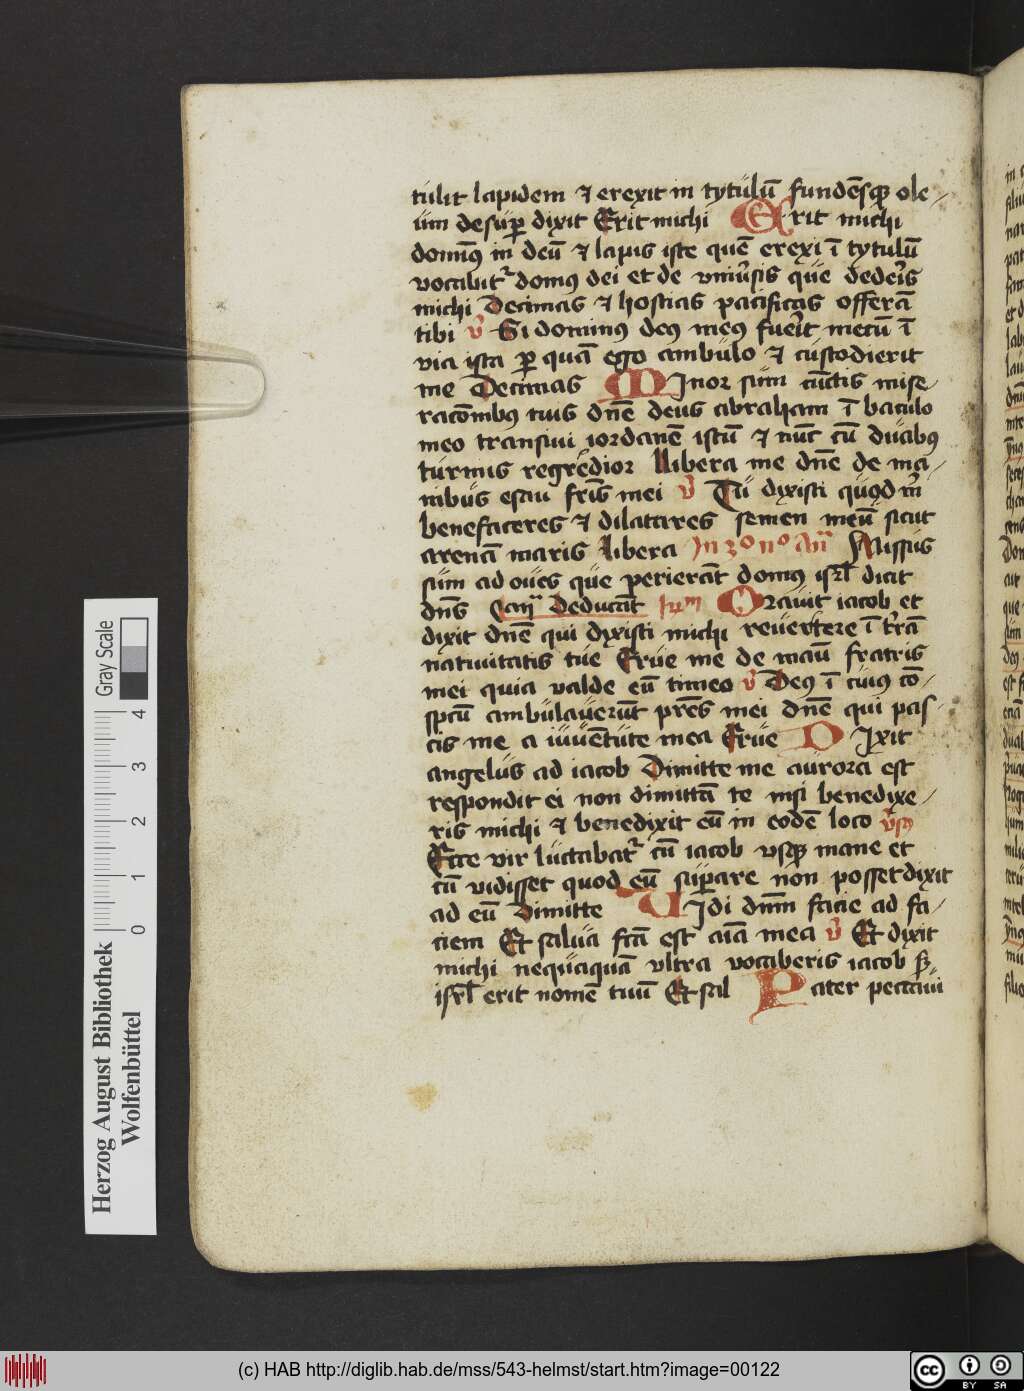 tulit lapidem ⁊ erexit in tytulū fundēsqꝫ ole-
um desuꝑ dixit Erit michi Erit michi
domīꝯ in deū ⁊ lapis iste quē erexi ī tytulū
vocabit᷑ domꝯ dei et de vniūsis que dedeīs
michi Decimas ⁊ hostias pacificas offerā
tibi v̄ Si dominꝯ deꝯ meꝯ fueīt mecū ī
via ista ꝑ quā ego ambulo ⁊ custodierit
me Decimas MInor sum cūctis mise-
racōnibꝯ tuis dn̄e deus abraham ī baculo
meo transiui iordanē istū ⁊ nūc cū duabꝯ
turmis regrēdior libera me dn̄e de ma-
nibus esau frīs mei v̄ Tu dixisti quod m̄
benefaceres ⁊ dilatares semen meū sicut
arenā maris Libera In 3º nº Añ Missus
sum ad oues que perierāt domꝯ isrl̄ dicit
dn̄s Can̄ Deducāt Orauit iacob et
dixit dn̄e qui dixisti michi reuertere ī tr̄ā
natiuitatis tue Erue me de manū fratris
mei quia valde eū timeo v̄ Deꝯ ī cuiꝯ cō-
spcū ambulauerūt prēs mei dn̄e qui pas-
cis me a iuuētute mea Erue DIxit
angelus ad iacob Dimitte me aurora est
respondit ei non dimittā te nisi benedixe-
ris michi ⁊ benedixit eū in eodē loco
Ecce vir luctabat᷑ cū iacob vsqꝫ mane et
cū vidisset quod eū suꝑare non posset dixit
ad eū Dimitte UIdi dn̄m facie ad fa-
ciem Et salua fcā est aīa mea v̄ Et dixit
michi nequaquā vltra vocaberis iacob sꝫ
isrl̄ erit nomē tuū Et sal Pater peccaui
Herzog August Bibliothek
Wolfenbüttel
0 1 2 3 4
Gray Scale
(c) HAB http://diglib.hab.de/mss/543-helmst/start.htm?image=00122
cc BY SA